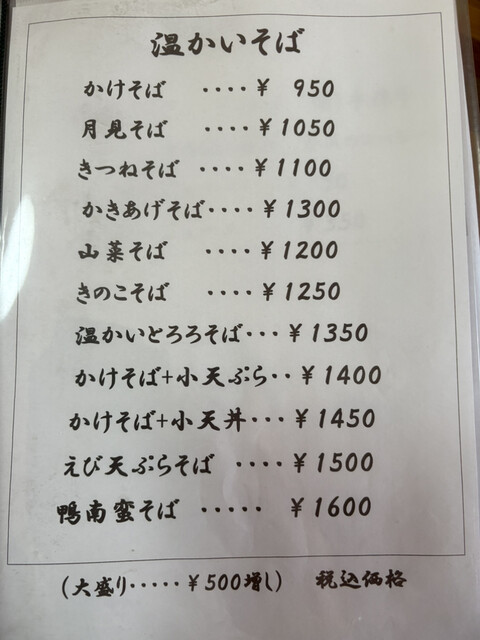 温かいそば
かけそば ････¥ 950
月見そば ････¥1050
きつねそば ････¥1100
かきあげそば････¥1300
山菜そば ････¥1200
きのこそば ････¥1250
温かいとろろそば･･･¥1350
かけそば+小天ぷら･･¥1400
かけそば+小天丼･･･¥1450
えび天ぷらそば ････¥1500
鴨南蛮そば ･････ ¥1600
(大盛り･････¥500増し) 税込価格